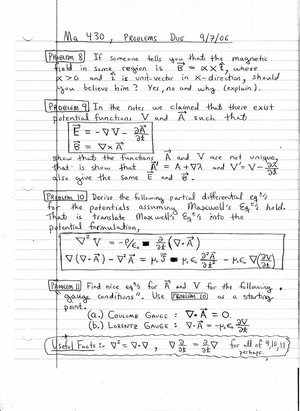 Ma 430, PROBLEMS DUE 9/7/06
PROBLEM 8 If someone tells you that the magnetic
field in some region is B⃗ = α x î, where
α > 0 and î is unit-vector in x-direction, should
you believe him? Yes, no and why (explain).
PROBLEM 9 In the notes we claimed that there exist
potential functions V and A⃗ such that
E⃗ = -∇V - ∂A⃗/∂t
B⃗ = ∇×A⃗
show that the functions A⃗ and V are not unique,
that is show that A⃗' = A + ∇λ and V' = V - ∂λ/∂t
also give the same E⃗ and B⃗.
PROBLEM 10 Derive the following partial differential eqⁿs
for the potentials assuming Maxwell's Eqⁿs hold.
That is translate Maxwell's Eqⁿs into the
potential formulation,
∇²V = -ρ/ε₀ - ∂/∂t (∇·A⃗)
∇(∇·A⃗) - ∇²A⃗ = μ₀J⃗ - μ₀ε₀ ∂²A⃗/∂t² - μ₀ε₀ ∇(∂V/∂t)
PROBLEM 11 Find nice eqⁿs for A⃗ and V for the following
"gauge conditions". Use PROBLEM 10 as a starting
point.
(a.) COULOMB GAUGE : ∇·A⃗ = 0.
(b.) LORENTZ GAUGE : ∇·A⃗ = -μ₀ε₀ ∂V/∂t
Useful Facts: ∇² = ∇·∇, ∇ ∂/∂t = ∂/∂t ∇ for all of 9,10,11
perhaps.